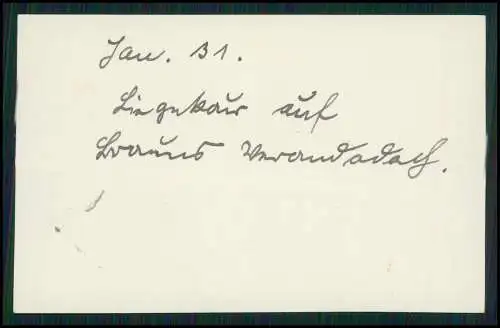 Jan. 31.
Liegekur auf
Brauns Verandadach.